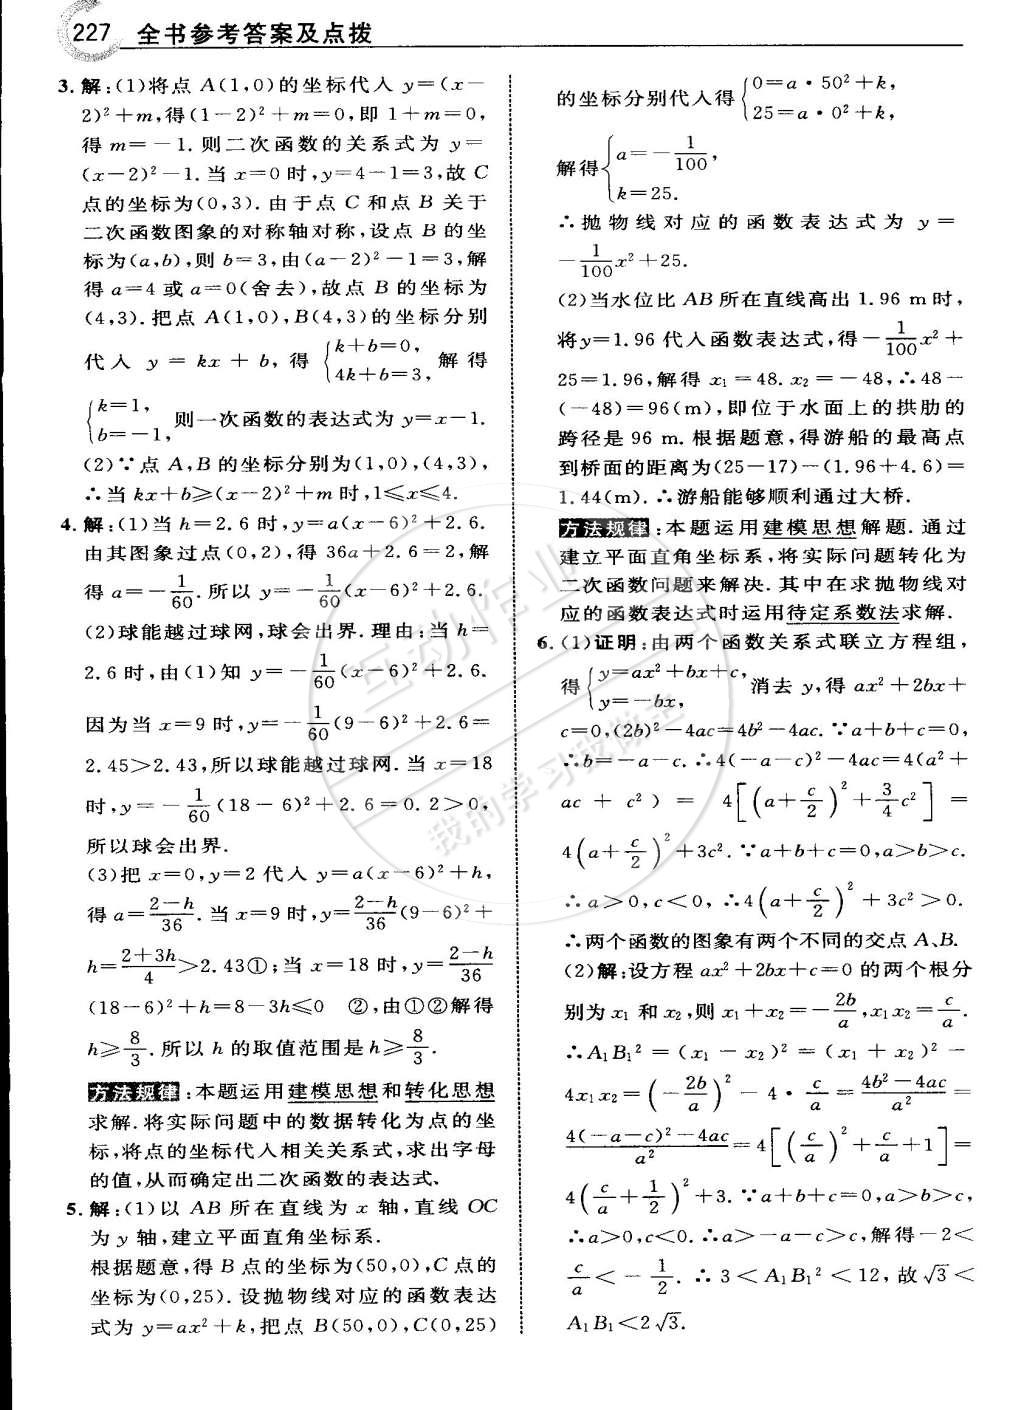 227 全书参考答案及点拨
3. 解:(1)将点 A(1,0)的坐标代入 y=(x-
2)²+m,得(1-2)²+m=0,即 1+m=0,
得 m=-1. 则二次函数的关系式为 y=
(x-2)²-1. 当 x=0 时,y=4-1=3,故 C
点的坐标为(0,3). 由于点 C 和点 B 关于
二次函数图象的对称轴对称,设点 B 的坐
标为(a,b),则 b=3,由(a-2)²-1=3,解
得 a=4 或 a=0(舍去),故点 B 的坐标为
(4,3). 把点 A(1,0),B(4,3)的坐标分别
代入 y = kx + b, 得 {k+b=0, 4k+b=3, 解得
{k=1, b=-1, 则一次函数的表达式为 y=x-1.
(2)∵点 A,B 的坐标分别为(1,0),(4,3),
∴当 kx+b≥(x-2)²+m 时,1≤x≤4.
4. 解:(1)当 h=2.6 时,y=a(x-6)²+2.6.
由其图象过点(0,2),得 36a+2.6=2,解
得 a=-1/60. 所以 y=-1/60(x-6)²+2.6.
(2)球能越过球网,球会出界. 理由:当 h=
2.6 时,由(1)知 y=-1/60(x-6)²+2.6.
因为当 x=9 时,y=-1/60(9-6)²+2.6=
2.45>2.43,所以球能越过球网. 当 x=18
时,y=-1/60(18-6)²+2.6=0.2>0,
所以球会出界.
(3)把 x=0,y=2 代入 y=a(x-6)²+h,
得 a=2-h/36. 当 x=9 时,y=2-h/36(9-6)²+
h=2+3h/4>2.43①;当 x=18 时,y=2-h/36
(18-6)²+h=8-3h≤0 ②,由①②解得
h≥8/3. 所以 h 的取值范围是 h≥8/3.
方法规律:本题运用建模思想和转化思想
求解. 将实际问题中的数据转化为点的坐
标,将点的坐标代入相关关系式,求出字母
的值,从而确定出二次函数的表达式、
5. 解:(1)以 AB 所在直线为 x 轴,直线 OC
为 y 轴,建立平面直角坐标系.
根据题意,得 B 点的坐标为(50,0),C 点的
坐标为(0,25). 设抛物线对应的函数表达
式为 y=ax²+k,把点 B(50,0),C(0,25)
的坐标分别代入得 {0=a·50²+k, 25=a·0²+k,
解得 {a=-1/100, k=25.
∴抛物线对应的函数表达式为 y=
-1/100x²+25.
(2)当水位比 AB 所在直线高出 1.96 m 时,
将y=1.96 代入函数表达式,得-1/100x²+
25=1.96,解得 x₁=48. x₂=-48,∴48-
(-48)=96(m),即位于水面上的拱肋的
跨径是 96 m. 根据题意,得游船的最高点
到桥面的距离为(25-17)-(1.96+4.6)=
1.44(m). ∴游船能够顺利通过大桥.
方法规律:本题运用建模思想解题. 通过
建立平面直角坐标系,将实际问题转化为
二次函数问题来解决. 其中在求抛物线对
应的函数表达式时运用待定系数法求解.
6. (1)证明:由两个函数关系式联立方程组,
得 {y=ax²+bx+c, y=-bx, 消去 y,得 ax²+2bx+
c=0,(2b)²-4ac=4b²-4ac. ∵a+b+c=0,
∴b=-a-c. ∴4(-a-c)²-4ac=4(a²+
ac + c²) = 4[(a+c/2)²+3/4c²] =
4(a+c/2)²+3c². ∵a+b+c=0,a>b>c.
∴a>0,c<0, ∴4(a+c/2)²+3c²>0.
∴两个函数的图象有两个不同的交点 A、B.
(2)解:设方程 ax²+2bx+c=0 的两个根分
别为 x₁ 和 x₂,则 x₁+x₂=-2b/a,x₁x₂=c/a.
∴A₁B₁²=(x₁-x₂)²=(x₁+x₂)²-
4x₁x₂=(-2b/a)²-4·c/a=4b²-4ac/a²=
4(-a-c)²-4ac/a²=4[(c/a)²+c/a+1]=
4(c/a+1/2)²+3. ∵a+b+c=0,a>b>c,
∴a>0,c<0. ∴a>-a-c>c,解得-2<
c/a<-1/2. ∴3<A₁B₁²<12,故√3<
A₁B₁<2√3.
互动作业
我的学习我做主